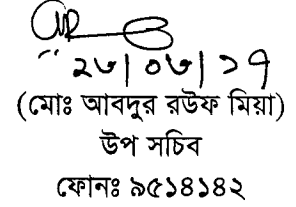 ২৩/০৩/১৭
(মোঃ আবদুর রউফ মিয়া)
উপ সচিব
ফোনঃ ৯৫১৪১৪২